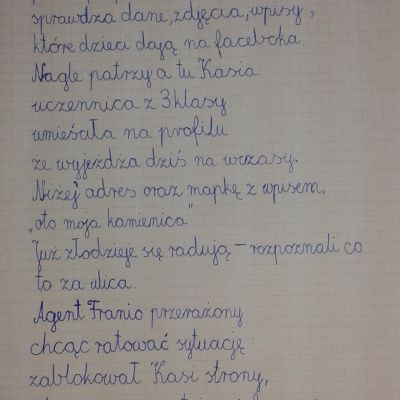 sprawdza dane, zdjęcia, wpisy,
które dzieci dają na facebcka.
Nagle patrzy a tu Kasia
uczennica z 3 klasy
umieśała na profilu
że wyjeżdża dziś na wczasy.
Niżej adres oraz mapkę z wpisem,
„oto moja kamienica"
Już złodzieje się radują – rozpoznali co
to za ulica.
Agent Franio przerażony
chcąc ratować sytuację
zablokował Kasi strony,